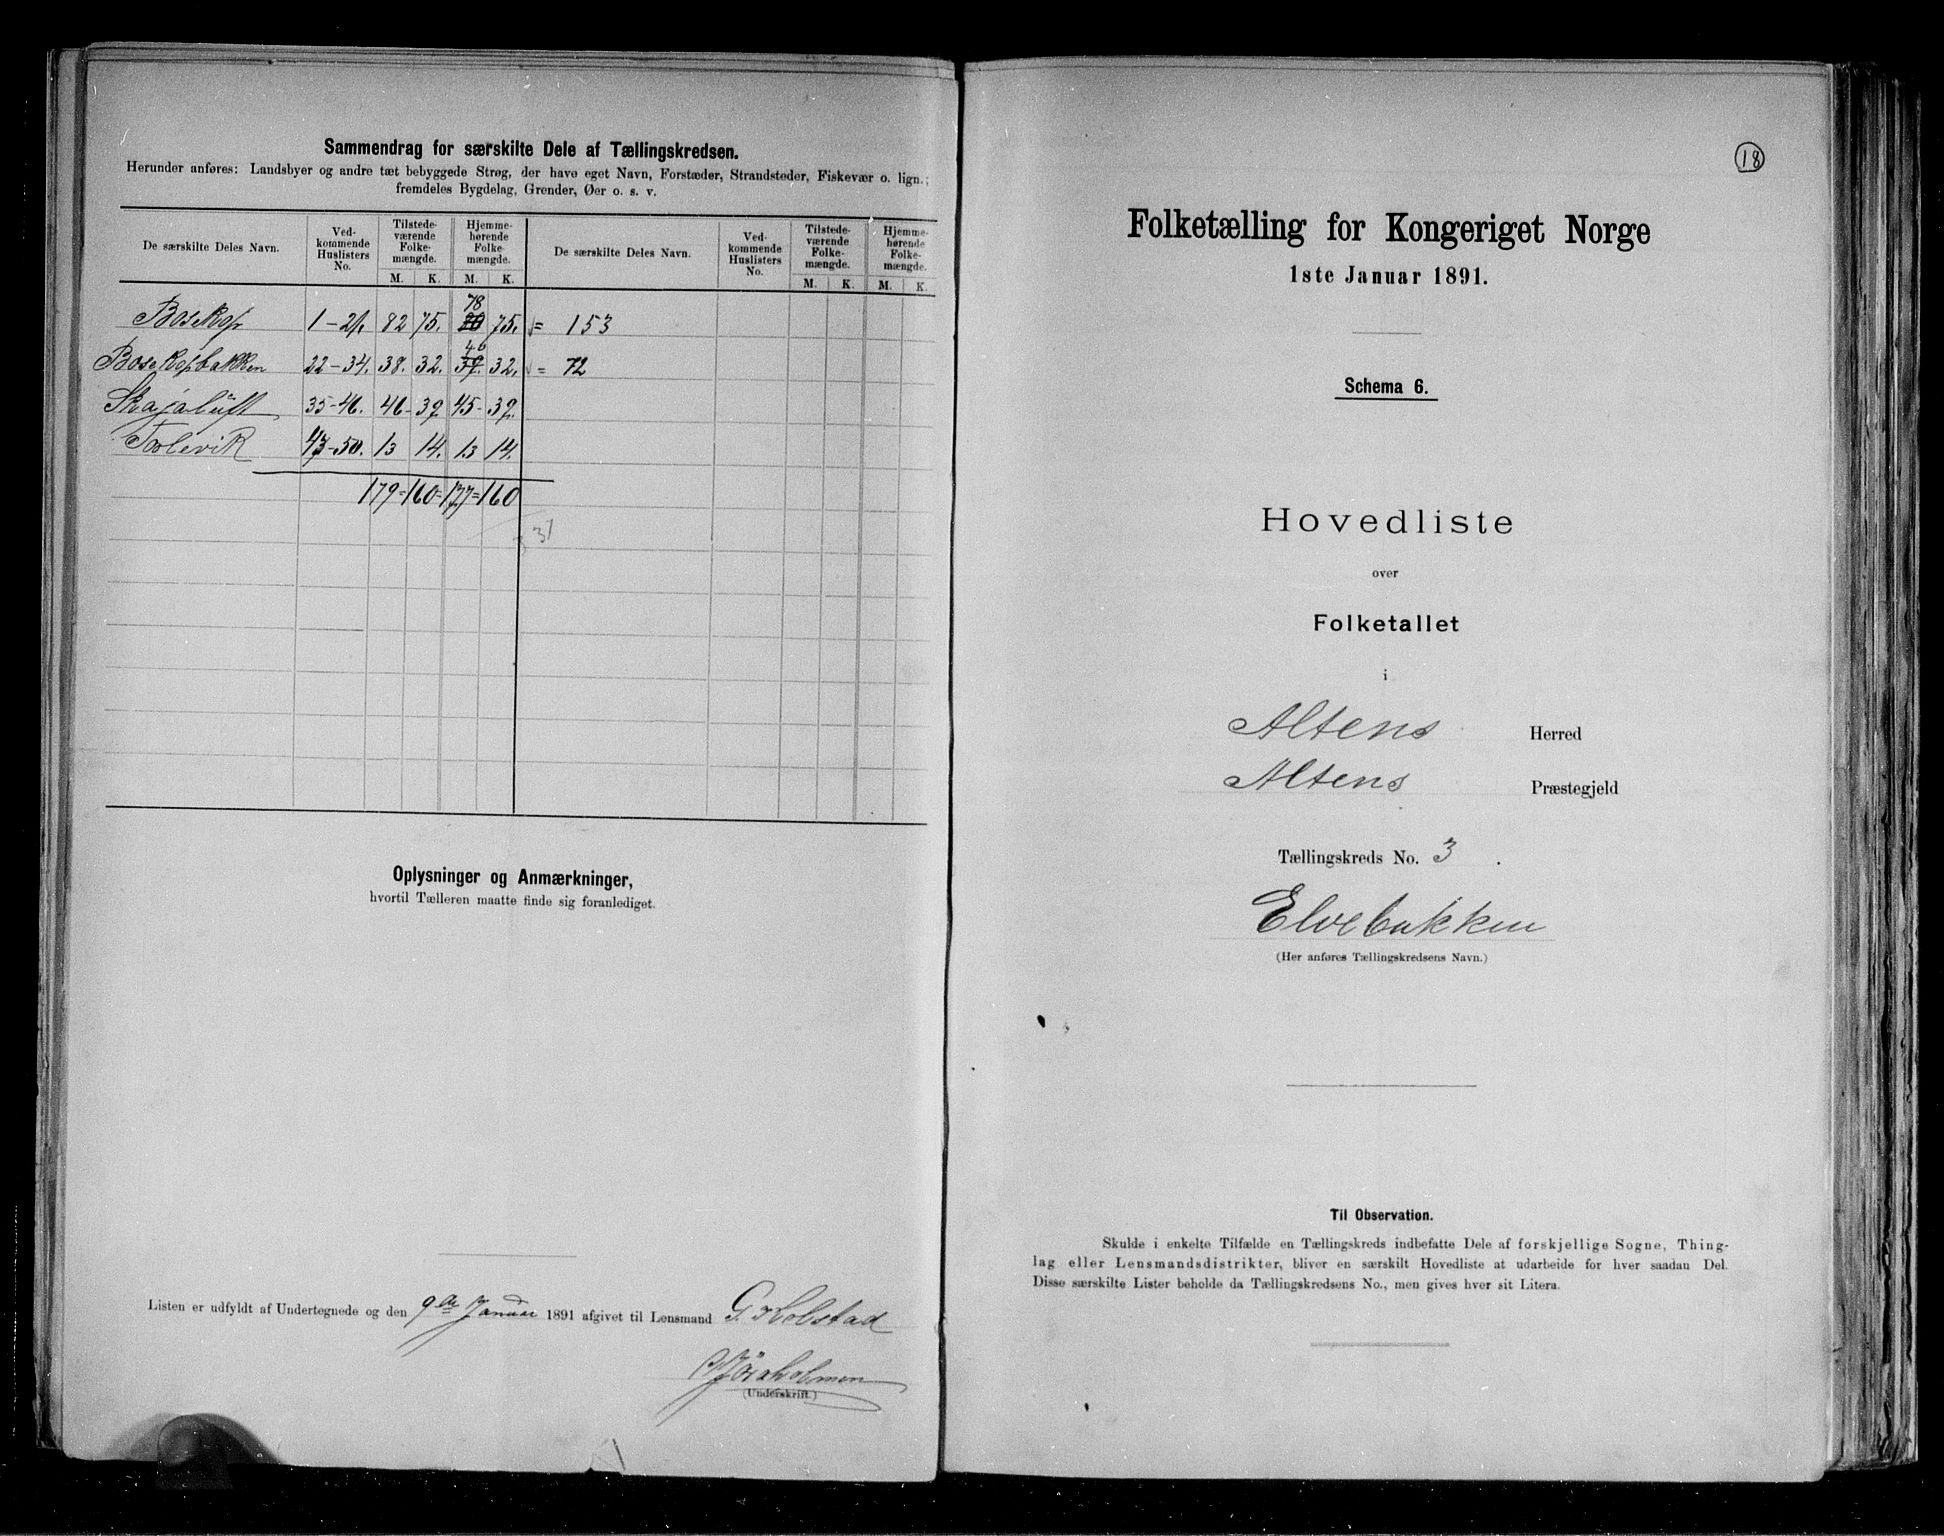 Sammendrag for særskilte Dele af Tællingskredsen.
Herunder anføres: Landsbyer og andre tæt bebyggede Strøg, der have eget Navn, Forstæder, Strandsteder, Fiskevær o. lign.;
fremdeles Bygdelag, Grender, Øer o. s. v.
De særskilte Deles Navn. Ved-kommende Huslisters No. Tilstede-værende Folke-mængde. Hjemme-hørende Folke-mængde. De særskilte Deles Navn. Ved-kommende Huslisters No. Tilstede-værende Folke-mængde. Hjemme-hørende Folke-mængde.
M. K. M. K. M. K. M. K.
Bosekop 1-21. 82 75. 78 75. = 153
Bosekopbakken 22-34. 38. 32. 40 39. 32. = 72
Skajaluft 35-46. 46- 39. 45- 39.
47-50. 13 14. 13 14.
179=160=177=160
31
Oplysninger og Anmærkninger,
hvortil Tælleren maatte finde sig foranlediget.
Listen er udfyldt af Undertegnede og den 9de Januar 1891 afgivet til Lensmand G. Holstad
(Underskrift.)
18
Folketælling for Kongeriget Norge
1ste Januar 1891.
Schema 6.
Hovedliste
over
Folketallet
i
Altens Herred
Altens Præstegjeld
Tællingskreds No. 3.
Elvebakken
(Her anføres Tællingskredsens Navn.)
Til Observation.
Skulde i enkelte Tilfælde en Tællingskreds indbefatte Dele af forskjellige Sogne, Thing-
lag eller Lensmandsdistrikter, bliver en særskilt Hovedliste at udarbeide for hver saadan Del.
Disse særskilte Lister beholde da Tællingskredsens No., men gives hver sit Litera.